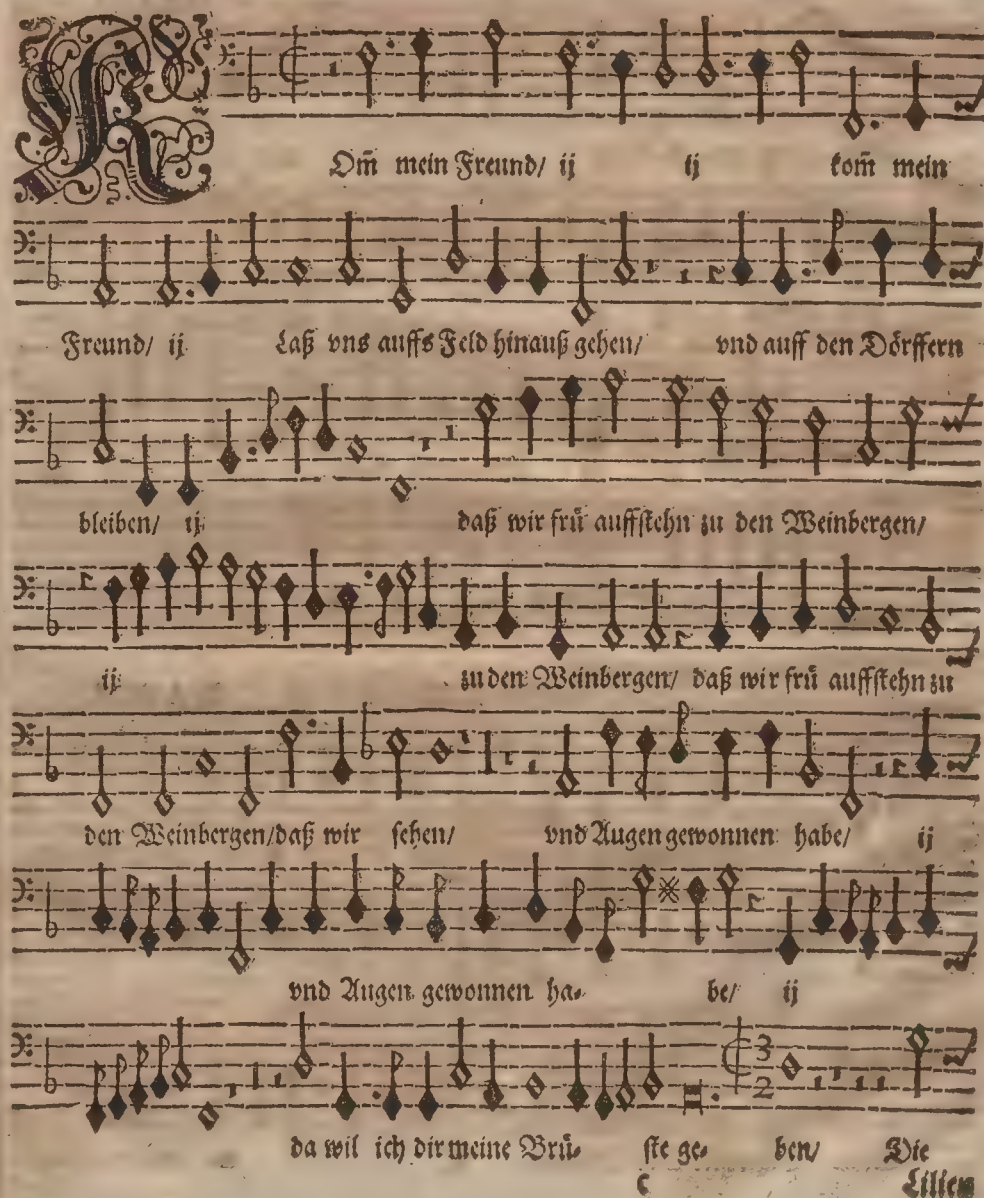 KOm̃ mein Freund/ ij ij kom̃ mein
Freund/ ij Laß vns auffs Feld hinauß gehen/ vnd auff den Dörffern
bleiben/ ij daß wir frü auffstehn zu den Weinbergen/
ij zu den Weinbergen/ daß wir frü auffstehn zu
den Weinbergen/ daß wir sehen/ vnd Augen gewonnen habe/ ij
vnd Augen gewonnen ha- be/ ij
3
2
da wil ich dir meine Brü- ste ge- ben/ Die
c Lilien